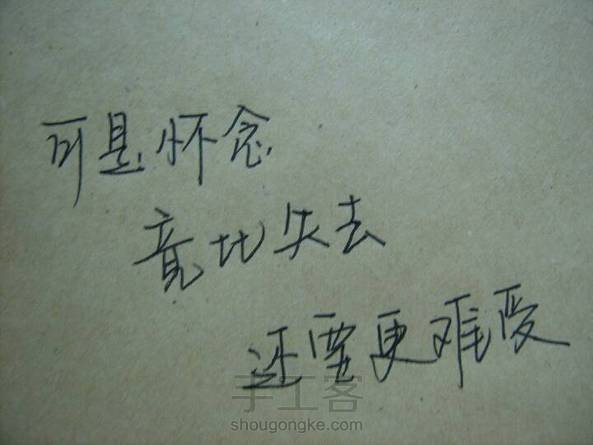 可是怀念
竟比失去
还要更难受
手工客
shougongke.com